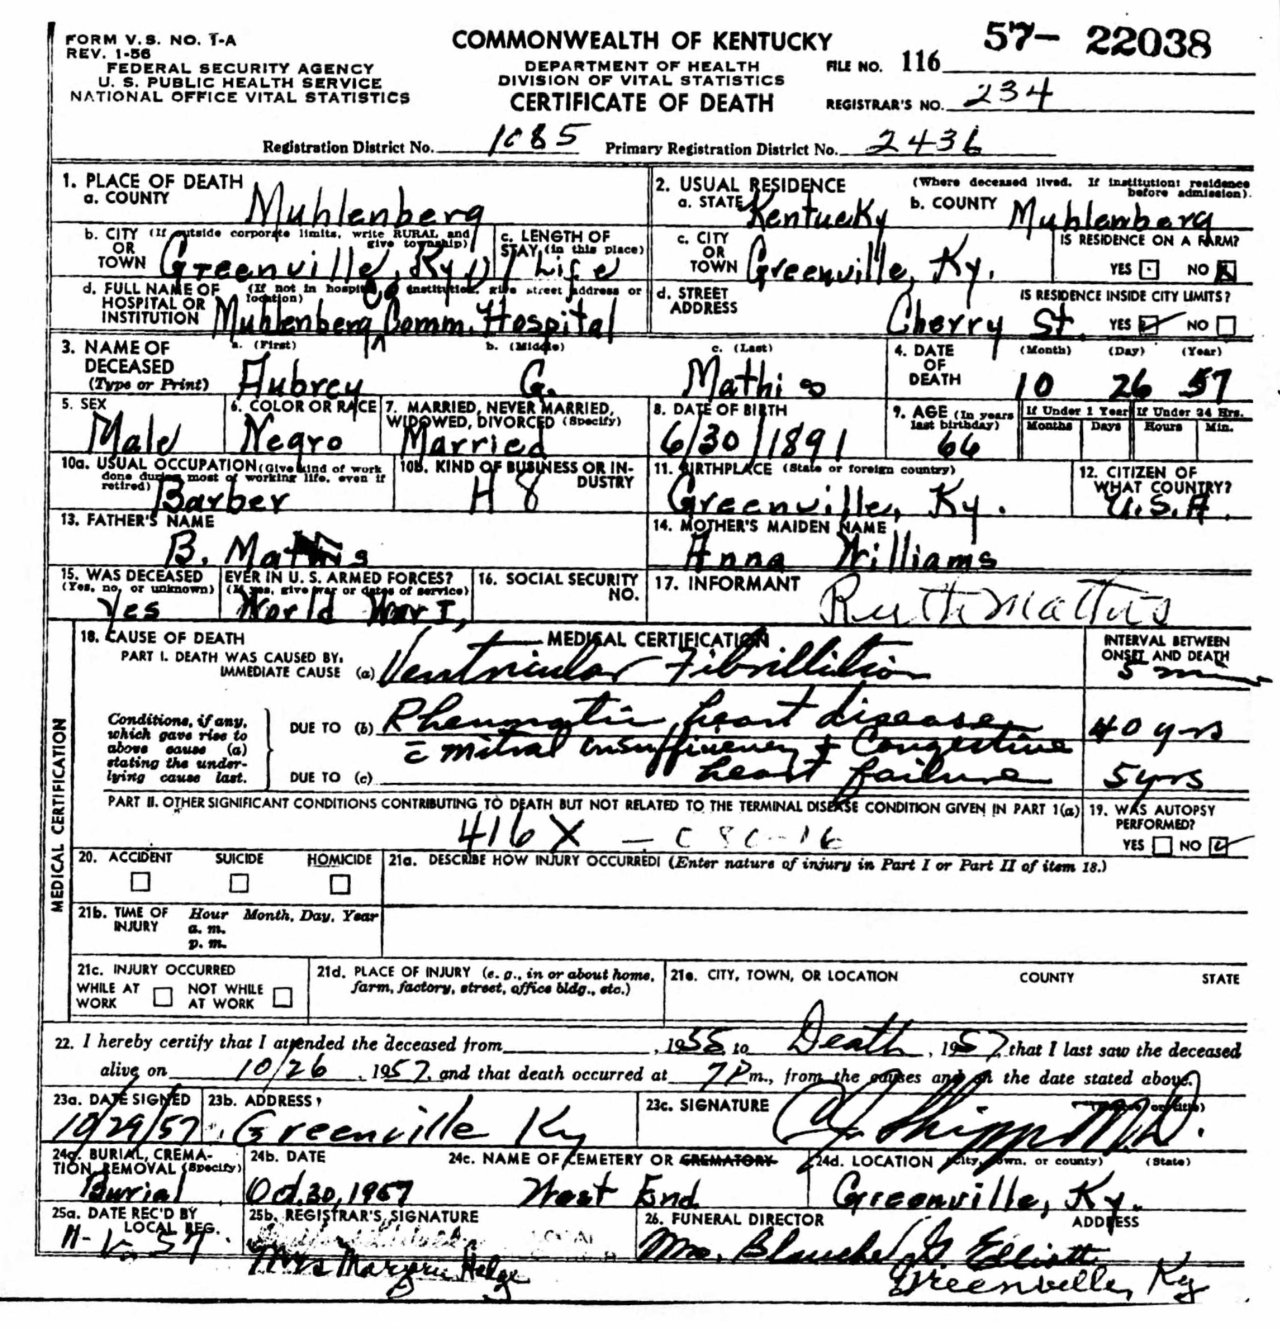 FORM V. S. NO. 1-A
REV. 1-56
FEDERAL SECURITY AGENCY
U. S. PUBLIC HEALTH SERVICE
NATIONAL OFFICE VITAL STATISTICS
COMMONWEALTH OF KENTUCKY
DEPARTMENT OF HEALTH
DIVISION OF VITAL STATISTICS
CERTIFICATE OF DEATH
57- 22038
FILE NO. 116
REGISTRAR'S NO. 234
Registration District No. 1085 Primary Registration District No. 2436
1. PLACE OF DEATH
a. COUNTY Muhlenberg
2. USUAL RESIDENCE (Where deceased lived. If institution: residence before admission).
a. STATE Kentucky b. COUNTY Muhlenberg
b. CITY (If outside corporate limits, write RURAL and give township)
OR
TOWN Greenville, Ky
c. LENGTH OF STAY (in this place) Life
c. CITY
OR
TOWN Greenville, Ky.
IS RESIDENCE ON A FARM?
YES NO X
d. FULL NAME OF HOSPITAL OR INSTITUTION (If not in hospital or institution, give street address or location)
Muhlenberg Comm. Hospital
d. STREET ADDRESS Cherry St.
IS RESIDENCE INSIDE CITY LIMITS?
YES ✓ NO
3. NAME OF DECEASED (Type or Print)
a. (First) b. (Middle) c. (Last)
Aubrey G. Mathis
4. DATE OF DEATH (Month) (Day) (Year)
10 26 57
5. SEX
Male
6. COLOR OR RACE
Negro
7. MARRIED, NEVER MARRIED, WIDOWED, DIVORCED (Specify)
Married
8. DATE OF BIRTH
6/30/1891
9. AGE (In years last birthday)
66
If Under 1 Year If Under 24 Hrs.
Months Days Hours Min.
10a. USUAL OCCUPATION (Give kind of work done during most of working life, even if retired)
Barber
10b. KIND OF BUSINESS OR INDUSTRY
H 8
11. BIRTHPLACE (State or foreign country)
Greenville, Ky.
12. CITIZEN OF WHAT COUNTRY?
U.S.A.
13. FATHER'S NAME
B. Mathis
14. MOTHER'S MAIDEN NAME
Anna Williams
15. WAS DECEASED EVER IN U. S. ARMED FORCES?
(Yes, no, or unknown) (If yes, give war or dates of service)
Yes World War I,
16. SOCIAL SECURITY NO.
17. INFORMANT
Ruth Mathis
MEDICAL CERTIFICATION
18. CAUSE OF DEATH
MEDICAL CERTIFICATION
INTERVAL BETWEEN ONSET AND DEATH
PART I. DEATH WAS CAUSED BY:
IMMEDIATE CAUSE (a) Ventricular Fibrillition 5 min
Conditions, if any, which gave rise to above cause (a) stating the underlying cause last.
DUE TO (b) Rheumatic heart disease 40 yrs
c̄ mitral insufficiency + Congestive
DUE TO (c) heart failure 5 yrs
PART II. OTHER SIGNIFICANT CONDITIONS CONTRIBUTING TO DEATH BUT NOT RELATED TO THE TERMINAL DISEASE CONDITION GIVEN IN PART 1(a)
416 X
19. WAS AUTOPSY PERFORMED?
YES NO ✓
20. ACCIDENT SUICIDE HOMICIDE
21a. DESCRIBE HOW INJURY OCCURRED! (Enter nature of injury in Part I or Part II of item 18.)
21b. TIME OF INJURY Hour Month, Day, Year
a. m.
p. m.
21c. INJURY OCCURRED
WHILE AT WORK NOT WHILE AT WORK
21d. PLACE OF INJURY (e. g., in or about home, farm, factory, street, office bldg., etc.)
21e. CITY, TOWN, OR LOCATION COUNTY STATE
22. I hereby certify that I attended the deceased from , 1955, to Death, 1957, that I last saw the deceased
alive on 10/26, 1957, and that death occurred at 7 P m., from the causes and on the date stated above.
23a. DATE SIGNED
10/29/57
23b. ADDRESS
Greenville Ky
23c. SIGNATURE
Shipp M.D.
24a. BURIAL, CREMATION, REMOVAL (Specify)
Burial
24b. DATE
Oct. 30, 1957
24c. NAME OF CEMETERY OR CREMATORY
West End
24d. LOCATION (City, town, or county) (State)
Greenville, Ky.
25a. DATE REC'D BY LOCAL REG.
25b. REGISTRAR'S SIGNATURE
Mrs
26. FUNERAL DIRECTOR ADDRESS
Mrs. Blanche G. Elliott
Greenville, Ky